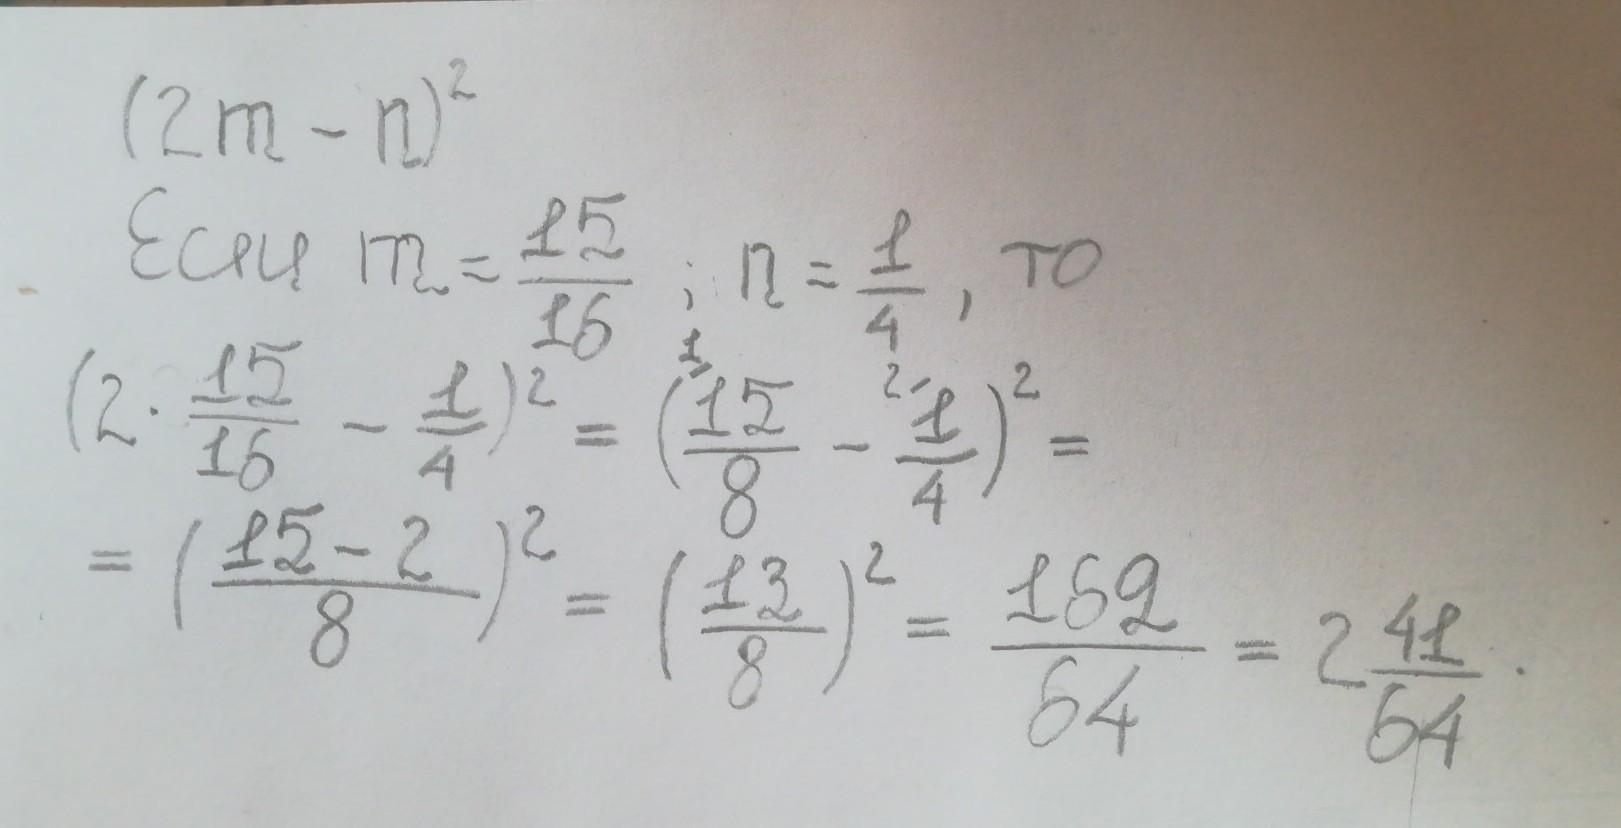 (2m - n)²
Если m = 15/16 ; n = 1/4 , то
(2 · 15/16 - 1/4)² = (¹⁾15/8 - ²⁾1/4)² =
= ((15 - 2)/8)² = (13/8)² = 169/64 = 2 41/64 .